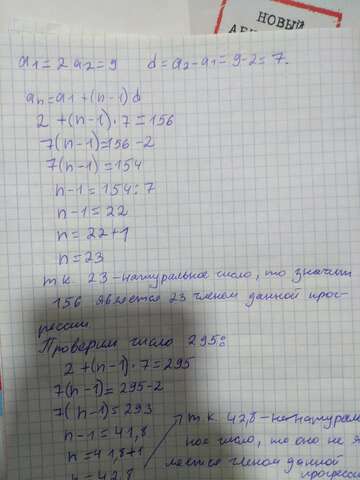 НОВЫЙ
a₁=2 a₂=9 d=a₂-a₁=9-2=7.
aₙ=a₁+(n-1)d
2+(n-1)·7=156
7(n-1)=156-2
7(n-1)=154
n-1=154:7
n-1=22
n=22+1
n=23
т.к. 23-натуральное число, то значит
156 является 23 членом данной прог-
рессии.
Проверим число 295:
2+(n-1)·7=295
7(n-1)=295-2
7(n-1)=293
n-1=41,8
n=41,8+1
n=42,8
т.к. 42,8-не натураль
ное число, то оно не я
ляется членом данной
прогресси